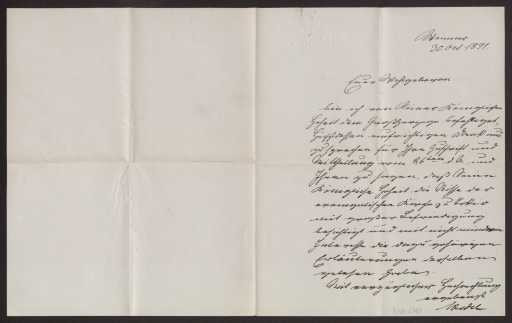 Weimar
30 Oct 1891.
Euer Wohlgeboren
bin ich von Seiner Königlichen
Hoheit dem Großherzog beauftragt,
Höchstdessen aufrichtigen Dank aus
zusprechen für Ihre Zuschrift und
Mittheilung vom 26ten d. M. und
Ihnen zu sagen, daß Seine
Königliche Hoheit die Skizze der
evangelischen Kirche zu
mit großer Befriedigung
besichtigt und mit nicht minderem
Interesse die dazu gehörigen
Erläuterungen derselben
gelesen habe.
Mit vorzüglicher Hochachtung
ergebenst